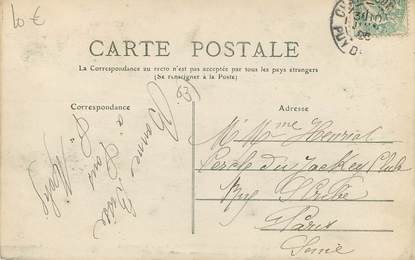 10 €
CARTE POSTALE
La Correspondance au recto n'est pas acceptée par tous les pays étrangers
(Se renseigner à la Poste)
63
Correspondance
Adresse
Bonne
à
Tous
M. Mme Henriot
Cercle du Jockey Club
Rue Scribe
Paris
Seine
PUY D